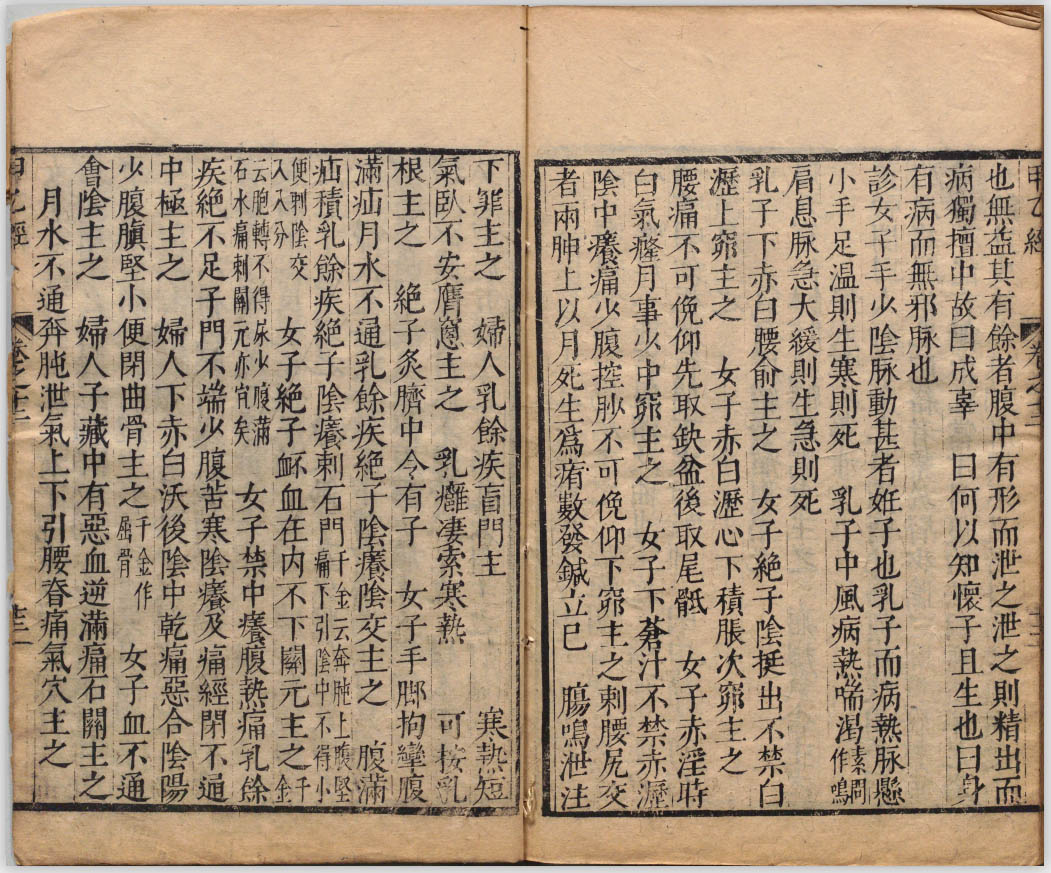 甲乙經 卷之十二
也無益其有餘者腹中有形而泄之泄之則精出而
病獨擅中故曰成辜 曰何以知懷子且生也曰身
有病而無邪脉也
診女子手少陰脉動甚者姙子也乳子而病熱脉懸
小手足温則生寒則死 乳子中風病熱喘渴素問作鳴
肩息脉急大緩則生急則死
乳子下赤白腰俞主之 女子絶子陰挺出不禁白
瀝上窌主之 女子赤白瀝心下積脹次窌主之
腰痛不可俛仰先取缺盆後取尾骶 女子赤淫時
白氣癃月事少中窌主之 女子下蒼汁不禁赤瀝
陰中癢痛少腹控䏚不可俛仰下窌主之刺腰尻交
者兩胂上以月死生爲痏數發鍼立已 腸鳴泄注
下窌主之 婦人乳餘疾盲門主 寒熱短
氣卧不安膺窻主之 乳癰凄索寒熱 可按乳
根主之 絶子灸臍中令有子 女子手脚拘攣腹
滿疝月水不通乳餘疾絶子陰癢陰交主之 腹滿
疝積乳餘疾絶子陰癢刺石門千金云奔肫上腹堅痛下引陰中不得小
便刺陰交入八分 女子絶子衃血在内不下關元主之千金
云胞轉不得尿少腹滿石水痛刺關元亦宜矣 女子禁中癢腹熱痛乳餘
疾絶不足子門不端少腹苦寒陰癢及痛經閉不通
中極主之 婦人下赤白沃後陰中乾痛惡合陰陽
少腹䐜堅小便閉曲骨主之千金作屈骨 女子血不通
會陰主之 婦人子藏中有惡血逆滿痛石關主之
月水不通奔肫泄氣上下引腰脊痛氣穴主之
甲乙經 卷之十二